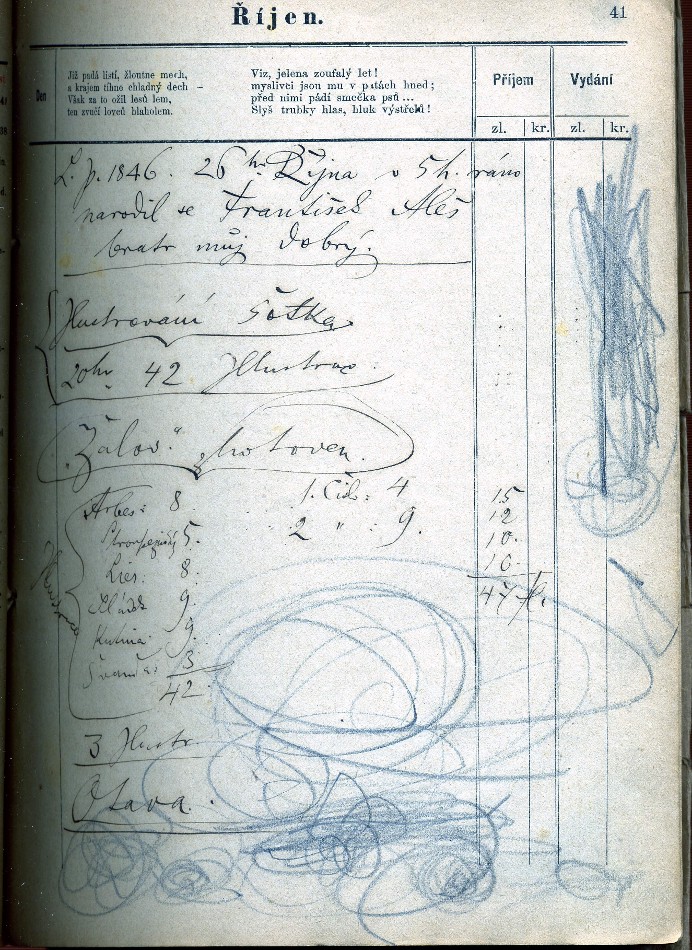 Říjen.
41
Den
Již padá listí, žloutne mech,
a krajem tíhne chladný dech –
Však za to ožil lesů lem,
ten zvučí lovců blaholem.
Viz, jelena zoufalý let!
myslivci jsou mu v patách hned;
před nimi pádí smečka psů ...
Slyš trubky hlas, hluk výstřelů!
Příjem
Vydání
zl. kr. zl. kr.
L. p. 1846. 26ho Října v 5 h. ráno
narodil se František Aleš
bratr můj dobrý.
Illustrování Šotka
42 Illustrac
"Žalov" zhotoven.
Arbes: 8. 1. Čís: 4
Stroupežnický 5. 2 " : 9.
Lier: 8.
9.
Kumina: 9.
3
42
15
12
10
10
47 zl.
3 Illustr.
Otava.